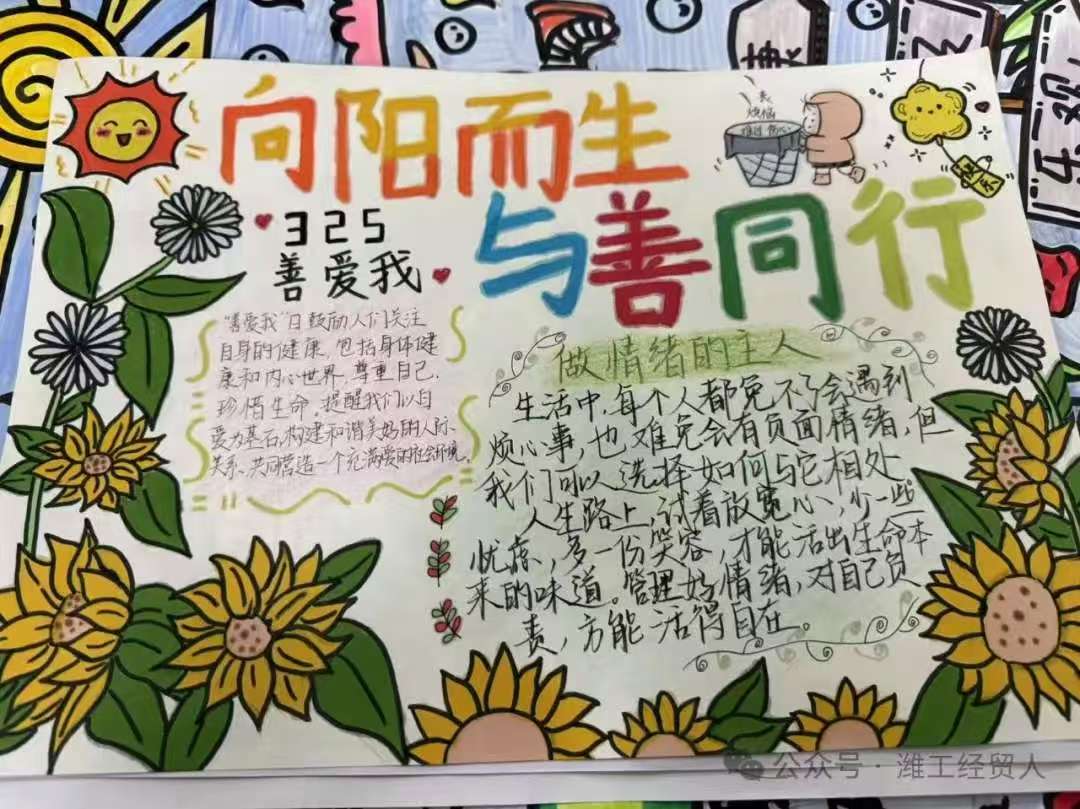 向阳而生
与善同行
325
善爱我
"善爱我"日鼓励人们关注
自身的健康,包括身体健
康和内心世界,尊重自己,
珍惜生命,提醒我们以自
爱为基石,构建和谐美好的人际
关系、共同营造一个充满爱的社会环境。
做情绪的主人
生活中,每个人都免不了会遇到
烦心事,也难免会有负面情绪,但
我们可以选择如何与它相处
人生路上,试着放宽心,少一些
忧虑,多一份笑容,才能活出生命本
来的味道。管理好情绪,对自己负
责,方能活得自在。
丢
烦恼
乐观
公众号·潍工经贸人